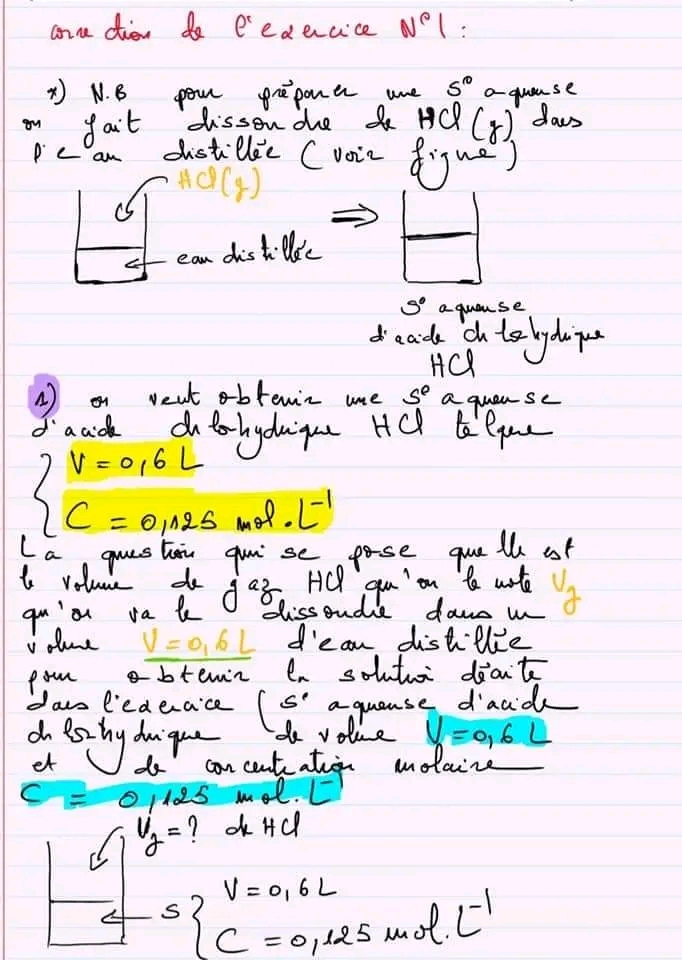 correction de l'exercice N°1 :
*) N.B pour préparer une S° aqueuse
on fait dissoudre de HCl (g) dans
l'eau distillée (voir figure)
HCl(g)
⇒
eau distillée
S° aqueuse
d'acide chlorhydrique
HCl
1) on veut obtenir une S° aqueuse
d'acide chlorhydrique HCl telque
V = 0,6 L
C = 0,125 mol.L⁻¹
La question qui se pose quelle est
le volume de gaz HCl qu'on le note Vg
qu'on va le dissoudre dans un
volume V = 0,6 L d'eau distillée
pour obtenir la solution décrite
dans l'exercice (S° aqueuse d'acide
chlorhydrique de volume V = 0,6 L
et de concentration molaire
C = 0,125 mol.L⁻¹
Vg = ? de HCl
S { V = 0,6 L
C = 0,125 mol.L⁻¹